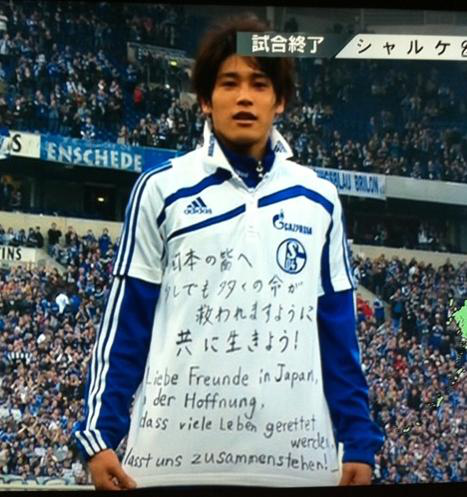 試合終了
シャルケ
ENSCHEDE
BLAU BRILON
adidas
GAZPROM
日本の皆へ
少しでも多くの命が
救われますように
共に生きよう!
Liebe Freunde in Japan,
der Hoffnung,
dass viele Leben gerettet
werden,
lasst uns zusammenstehen!